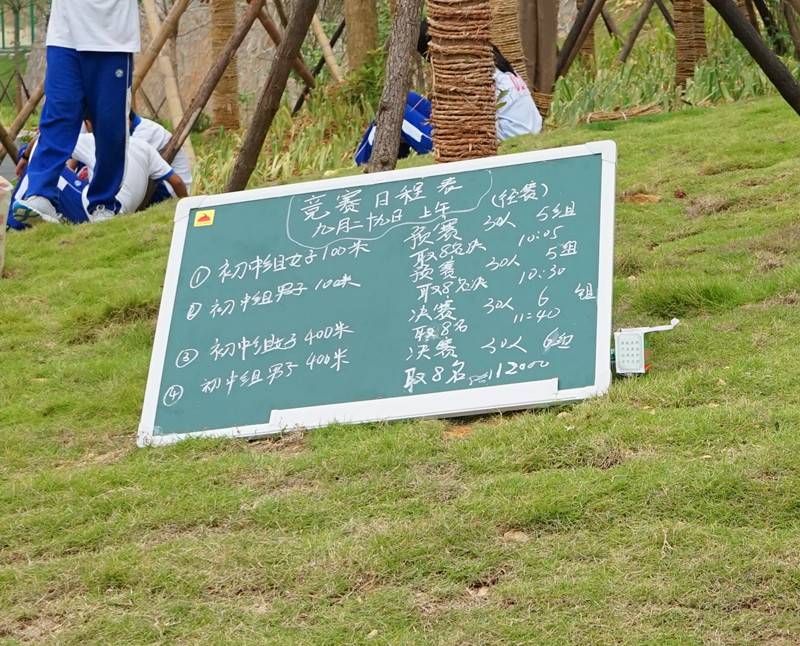 竞赛日程表 (径赛)
九月二十九日 上午
① 初中组女子100米 预赛 30人 5组
取8名决 10:05
② 初中组男子100米 预赛 30人 5组
取8名决 10:30
③ 初中组女子400米 决赛 30人 6组
取8名 11=40
④ 初中组男子400米 决赛 30人 6组
取8名